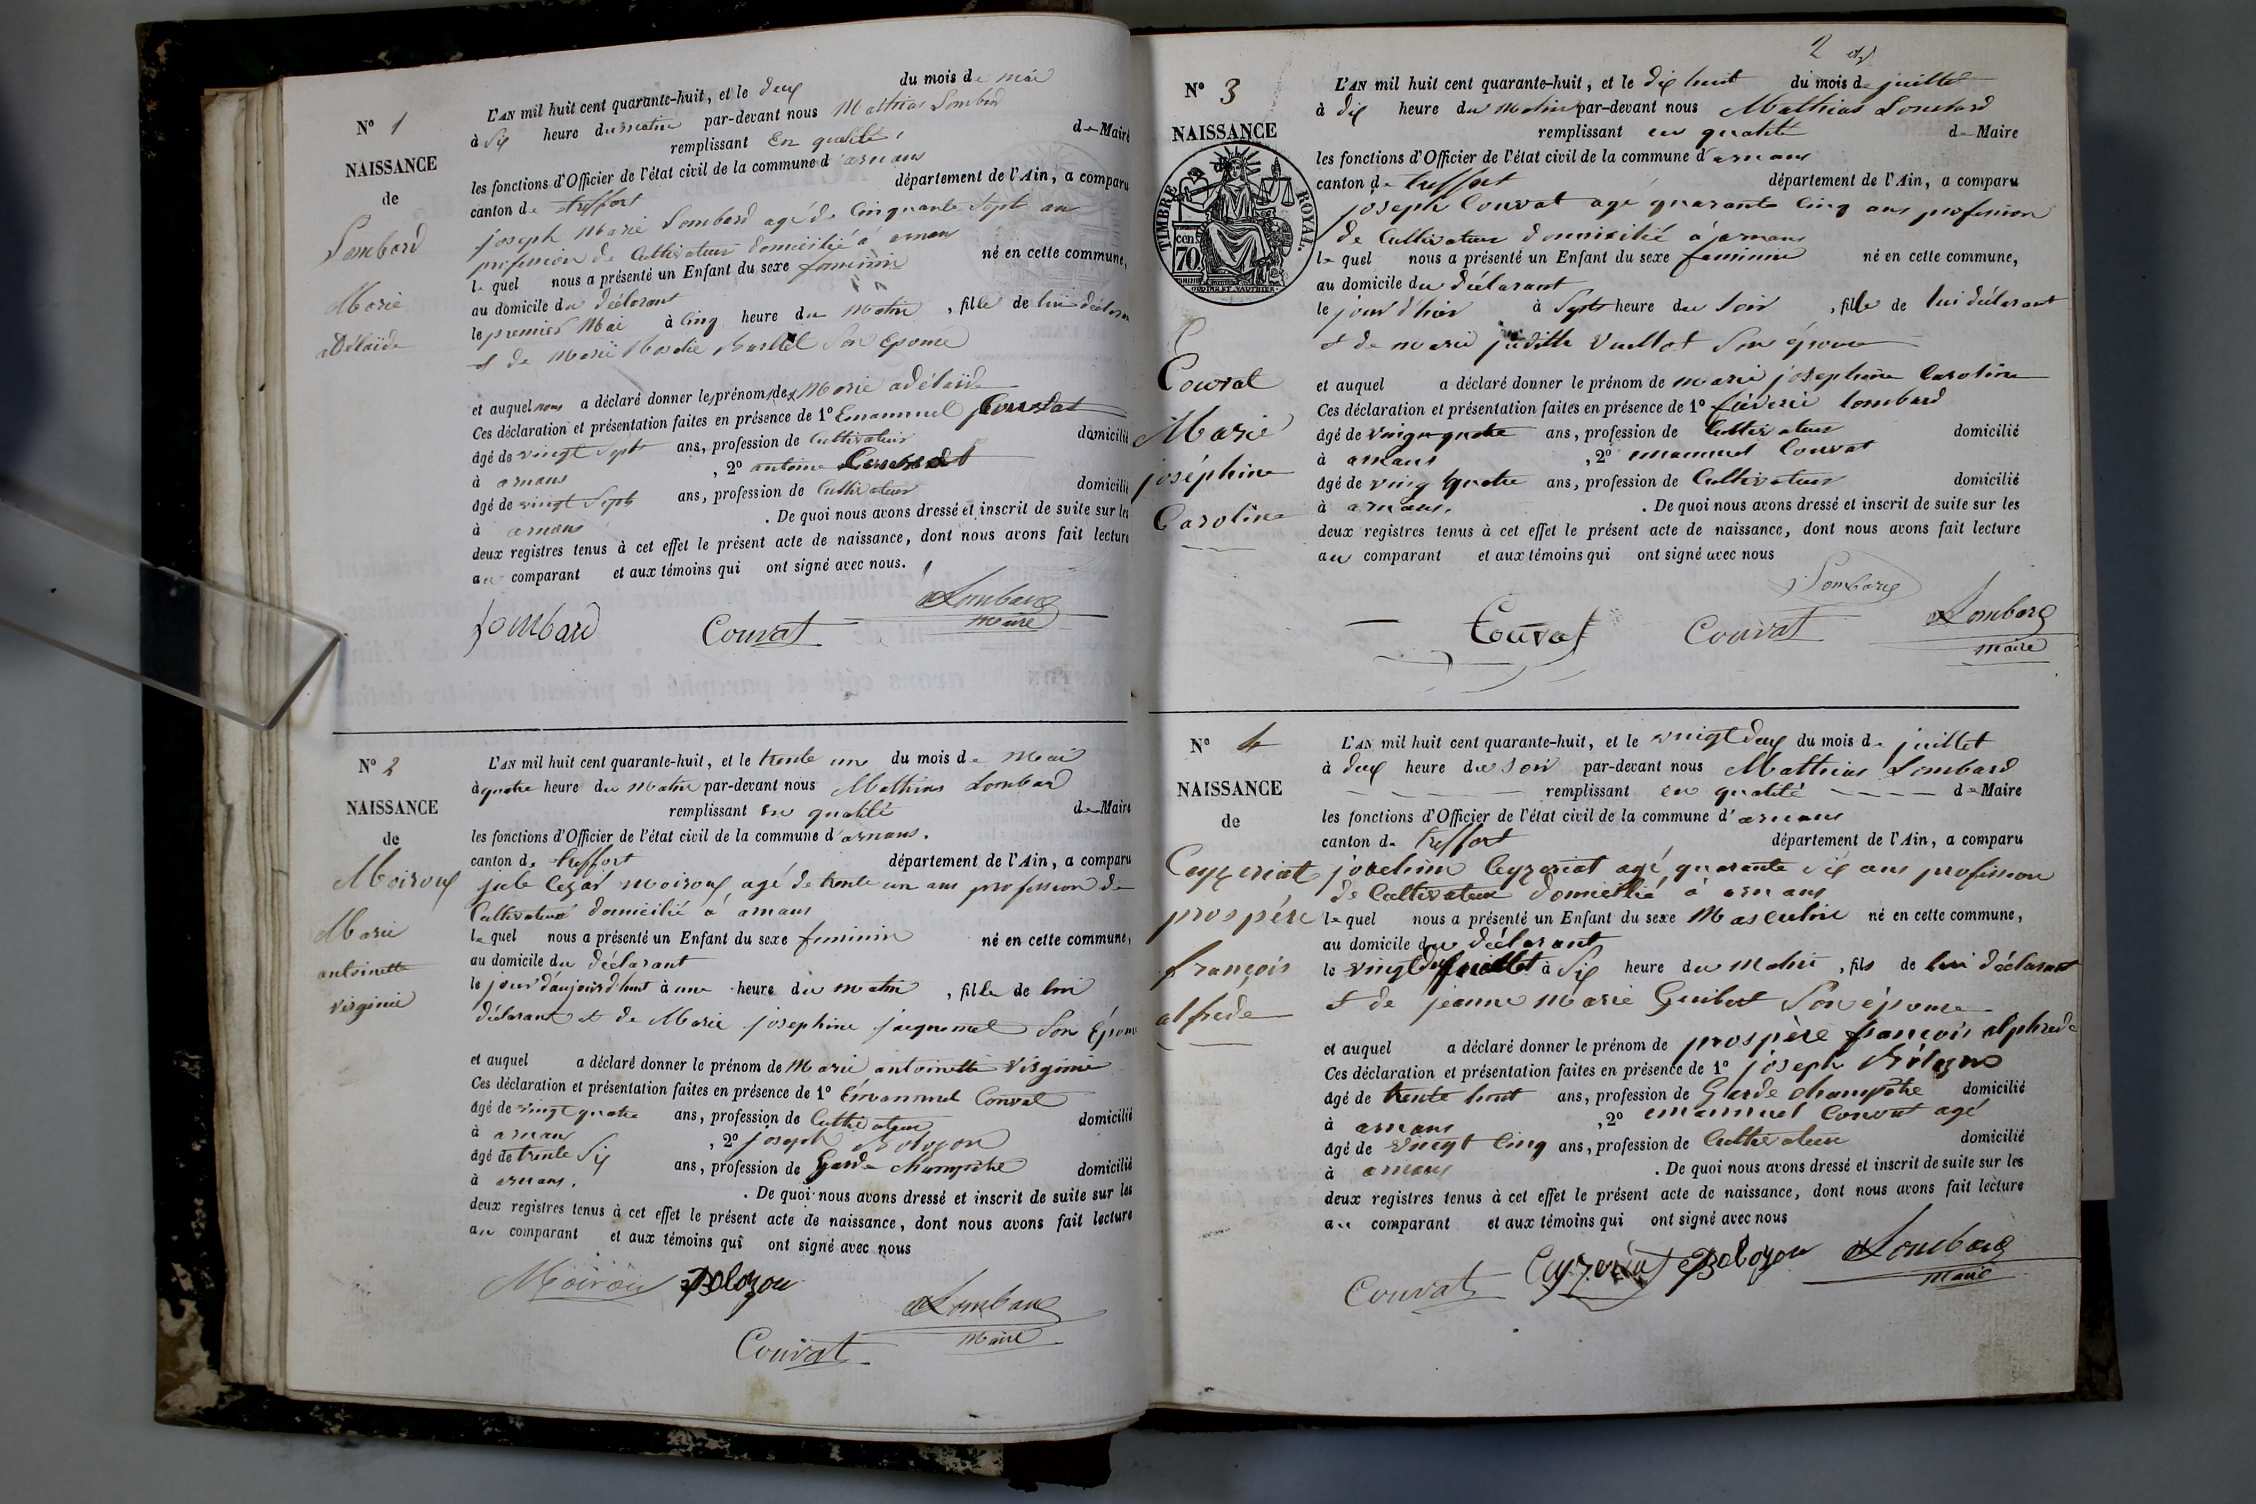 N° 1
NAISSANCE
de
Lombard
Marie
adélaïde
L'AN mil huit cent quarante-huit, et le deux du mois de mai
à six heure du matin par-devant nous Mathias Lombard
remplissant en qualité de Maire
les fonctions d'Officier de l'état civil de la commune d'arnans
canton de treffort département de l'Ain, a comparu
joseph Marie Lombard agé de Cinquante Sept an
profession de Cultivateur domicilié à arnans
le quel nous a présenté un Enfant du sexe feminin né en cette commune,
au domicile du déclarant
le premier Mai à Cinq heure du matin, fille de lui déclarant
et de Marie Son épouse
et auquel nous a déclaré donner le prénom de Marie adélaïde
Ces déclaration et présentation faites en présence de 1° Emanuel Couvat
âgé de vingt Sept ans, profession de Cultivateur domicilié
à arnans , 2° antoine
âgé de vingt Sept ans, profession de Cultivateur domicilié
à arnans . De quoi nous avons dressé et inscrit de suite sur les
deux registres tenus à cet effet le présent acte de naissance, dont nous avons fait lecture
au comparant et aux témoins qui ont signé avec nous.
Lombard Couvat Lombard
maire
N° 2
NAISSANCE
de
Moiroux
Marie
antoinette
virginie
L'AN mil huit cent quarante-huit, et le trente une du mois de Mai
à quatre heure du matin par-devant nous Mathias Lombard
remplissant en qualité de Maire
les fonctions d'Officier de l'état civil de la commune d'arnans.
canton de treffort département de l'Ain, a comparu
jule Cezar moiroux, agé de trente un ans profession de
Cultivateur domicilié à arnans
le quel nous a présenté un Enfant du sexe feminin né en cette commune,
au domicile du déclarant
le jour d'aujourd'huit à une heure du matin, fille de lui
déclarant et de Marie josephine jaquemet Son Épouse
et auquel a déclaré donner le prénom de Marie antoinette virginie
Ces déclaration et présentation faites en présence de 1° Emanuel Couvat
âgé de vingt quatre ans, profession de Cultivateur domicilié
à arnans , 2° joseph Bolozon
âgé de trente Six ans, profession de Garde champêtre domicilié
à arnans. . De quoi nous avons dressé et inscrit de suite sur les
deux registres tenus à cet effet le présent acte de naissance, dont nous avons fait lecture
au comparant et aux témoins qui ont signé avec nous
Moiroux Bolozon Lombard
maire
Couvat
2
N° 3
NAISSANCE
TIMBRE ROYAL.
70 cen.
Couvat
Marie
joséphine
Caroline
L'AN mil huit cent quarante-huit, et le dix huit du mois de juillet
à dix heure du matin par-devant nous Mathias Lombard
remplissant en qualité de Maire
les fonctions d'Officier de l'état civil de la commune d'arnans
canton de treffort département de l'Ain, a comparu
joseph Couvat agé quarante Cinq ans profession
de Cultivateur domicilié à arnans
le quel nous a présenté un Enfant du sexe feminin né en cette commune,
au domicile du déclarant
le jour d'hier à Sept heure du Soir, fille de lui déclarant
et de marie judith Vuillot Son épouse
et auquel a déclaré donner le prénom de marie josephine Caroline
Ces déclaration et présentation faites en présence de 1° lombard
âgé de vingt quatre ans, profession de Cultivateur domicilié
à arnans , 2° emanuel Couvat
âgé de ving quatre ans, profession de Cultivateur domicilié
à arnans. . De quoi nous avons dressé et inscrit de suite sur les
deux registres tenus à cet effet le présent acte de naissance, dont nous avons fait lecture
au comparant et aux témoins qui ont signé avec nous
Lombard
Couvat Couvat Lombard
maire
N° 4
NAISSANCE
de
Ceyzeriat
prospére
françois
alfrede
L'AN mil huit cent quarante-huit, et le vingt deux du mois de juillet
à deux heure du Soir par-devant nous Mathias Lombard
remplissant en qualité de Maire
les fonctions d'Officier de l'état civil de la commune d'arnans
canton de treffort département de l'Ain, a comparu
joachim Ceyzeriat agé, quarante Six ans profession
de Cultivateur domicilié à arnans
le quel nous a présenté un Enfant du sexe Masculin né en cette commune,
au domicile du déclarant
le vingt deux juillet à Six heure du matin, fils de lui déclarant
et de jeanne Marie Guibert Son épouse
et auquel a déclaré donner le prénom de prospère françois alphrede
Ces déclaration et présentation faites en présence de 1° joseph Bolozon
âgé de trente huit ans, profession de Garde champêtre domicilié
à arnans , 2° emanuel Couvat agé
âgé de vingt Cinq ans, profession de Cultivateur domicilié
à arnans . De quoi nous avons dressé et inscrit de suite sur les
deux registres tenus à cet effet le présent acte de naissance, dont nous avons fait lecture
au comparant et aux témoins qui ont signé avec nous
Couvat Ceyzeriat Bolozon Lombard
maire